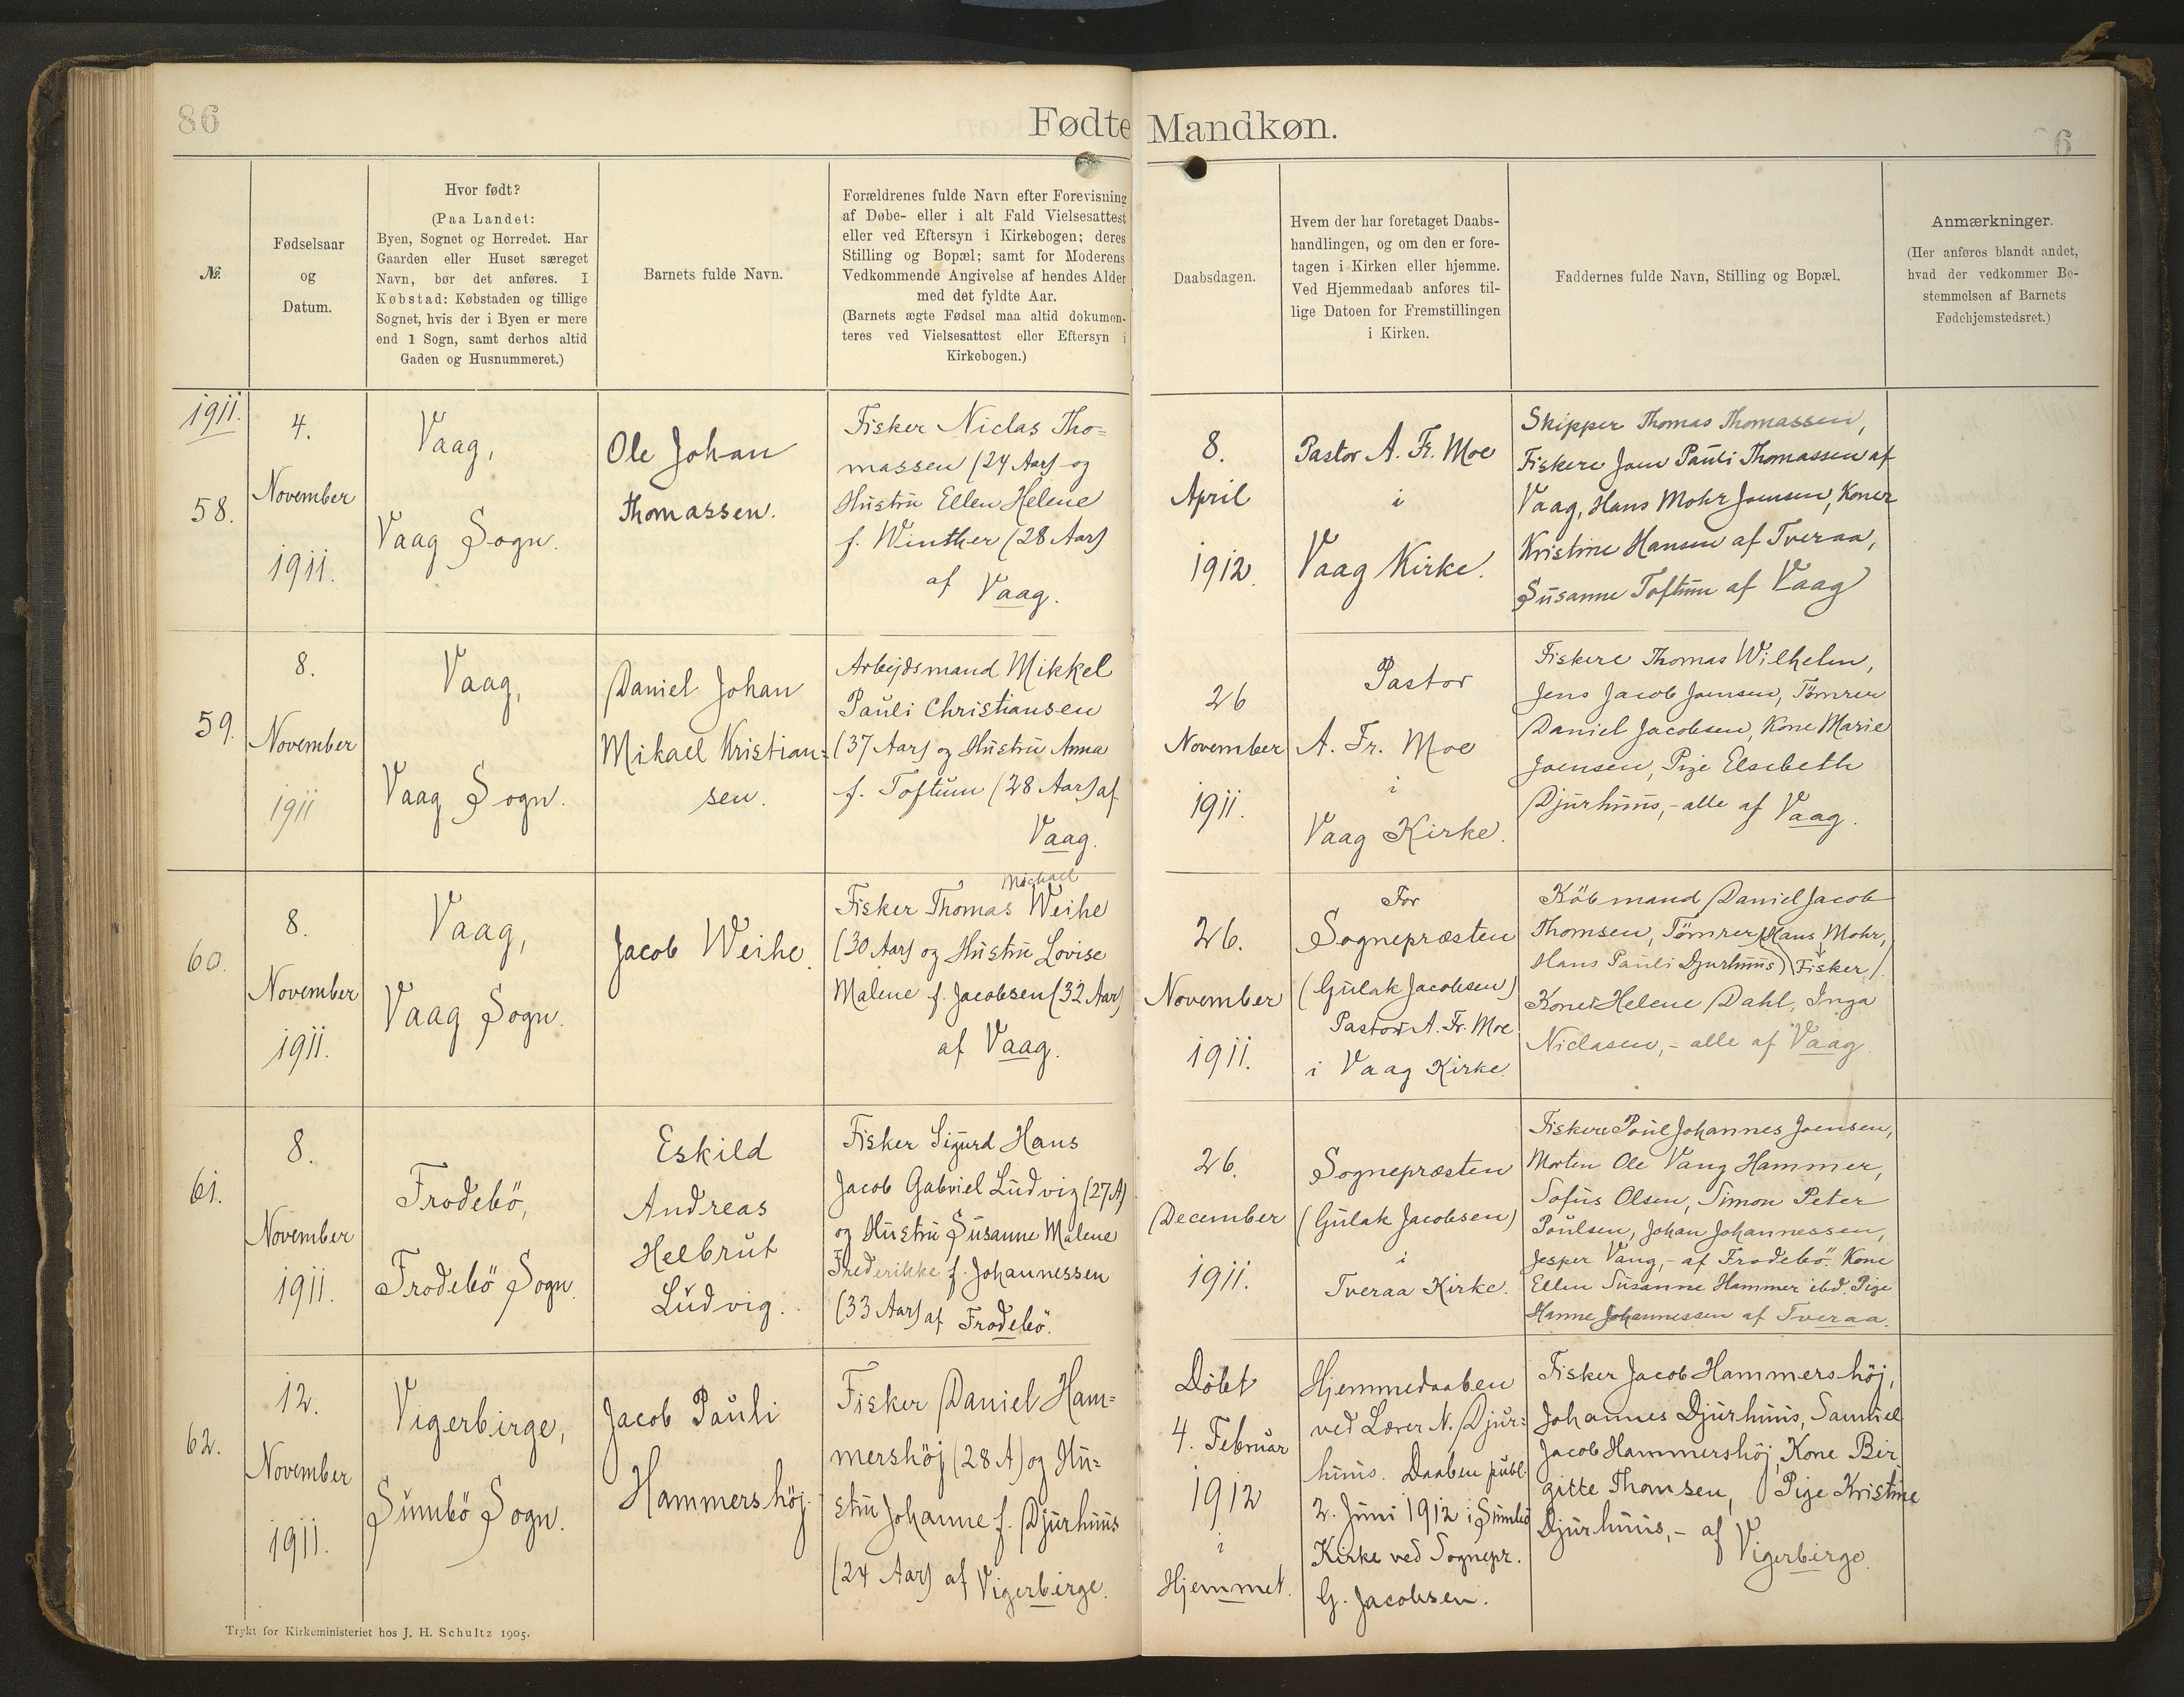 86
Fødte Mandkøn.
86
№.
Fødselsaar
og
Datum.
Hvor født?
(Paa Landet:
Byen, Sognet og Herredet. Har
Gaarden eller Huset særeget
Navn, bør det anføres. I
Købstad: Købstaden og tillige
Sognet, hvis der i Byen er mere
end 1 Sogn, samt derhos altid
Gaden og Husnummeret.)
Barnets fulde Navn.
Forældrenes fulde Navn efter Forevisning
af Døbe- eller i alt Fald Vielsesattest
eller ved Eftersyn i Kirkebogen; deres
Stilling og Bopæl; samt for Moderens
Vedkommende Angivelse af hendes Alder
med det fyldte Aar.
(Barnets ægte Fødsel maa altid dokumen-
teres ved Vielsesattest eller Eftersyn i
Kirkebogen.)
Daabsdagen.
Hvem der har foretaget Daabs-
handlingen, og om den er fore-
tagen i Kirken eller hjemme.
Ved Hjemmedaab anføres til-
lige Datoen for Fremstillingen
i Kirken.
Faddernes fulde Navn, Stilling og Bopæl.
Anmærkninger.
(Her anføres blandt andet,
hvad der vedkommer Be-
stemmelsen af Barnets
Fødehjemstedsret.)
1911.
58.
4.
November
1911.
Vaag,
Vaag Sogn.
Ole Johan
Thomassen.
Fisker Niclas Tho=
massen (24 Aar) og
Hustrü Ellen Helene
f. Winther (28 Aar)
af Vaag.
8.
April
1912.
Pastor A. Fr. Moe
i
Vaag Kirke.
Skipper Thomas Thomassen,
Fiskere Joen Pauli Thomassen af
Vaag, Hans Mohr Joensen, Koner
Kristine Hansen af Tveraa,
Susanne Toftum af Vaag
59.
8.
November
1911
Vaag,
Vaag Sogn.
Daniel Johan
Mikael Kristian=
sen.
Arbejdsmand Mikkel
Pauli Christiansen
(37 Aar) og Hustru Anna
f. Toftum (28 Aar) af
Vaag.
26
November
1911.
Pastor
A. Fr. Moe
i
Vaag Kirke.
Fiskere Thomas Wilhelm,
Jens Jacob Joensen, Tömrer
Daniel Jacobsen, Kone Marie
Joensen, Pige Elsebeth
Djurhuus,- alle af Vaag.
60.
8.
November
1911.
Vaag,
Vaag Sogn.
Jacob Weihe.
Michael
Fisker Thomas Weihe
(30 Aar) og Hustru Lovise
Malene f. Jacobsen (32 Aar)
af Vaag.
26.
November
1911.
For
Sognepræsten
(Gulak Jacobsen)
Pastor A. Fr. Moe
i Vaag Kirke.
Köbmand Daniel Jacob
Thomsen, Tömrer (Hans Mohr,
Hans Pauli Djurhuus) (Fisker).
Koner Helene Dahl, Inga
Niclasen,- alle af Vaag.
61.
8.
November
1911.
Frodebö,
Frodebö Sogn.
Eskild
Andreas
Heebrut
Ludvig.
Fisker Sigurd Hans
Jacob Gabriel Ludvig (27 A)
og Hustru Susanne Malene
Frederikke f. Johannessen
(33 Aar) af Frodebö.
26.
December
1911.
Sognepræsten
(Gulak Jacobsen)
i
Tveraa Kirke.
Fiskere Poul Johannes Joensen,
Morten Ole Vang Hammer,
Sofus Olsen, Simon Peter
Poulsen, Johan Johannessen,
Jesper Vang,- af Frodebö. Kone
Ellen Susanne Hammer ibd. Pige
Hanne Johannessen af Tveraa.
62.
12.
November
1911.
Vigerbirge,
Sumbö Sogn.
Jacob Pauli
Hammershöj.
Fisker Daniel Ham=
mershöj (28 A) og Hu=
stru Johanne f. Djurhuus
(24 Aar) af Vigerbirge.
Döbt
4. Februar
1912
i
Hjemmet.
Hjemmedaaben
ved Lærer N. Djur=
huus. Daaben publ.
2. Juni 1912 i Sumbö
Kirke ved Sognepr.
G. Jacobsen.
Fisker Jacob Hammershöj,
Johannes Djurhuus, Samuel
Jacob Hammershöj, Kone Bir
gitte Thomsen, Pige Kristine
Djurhuus,- af
Vigerbirge.
Trykt for Kirkeministeriet hos J. H. Schultz 1905.